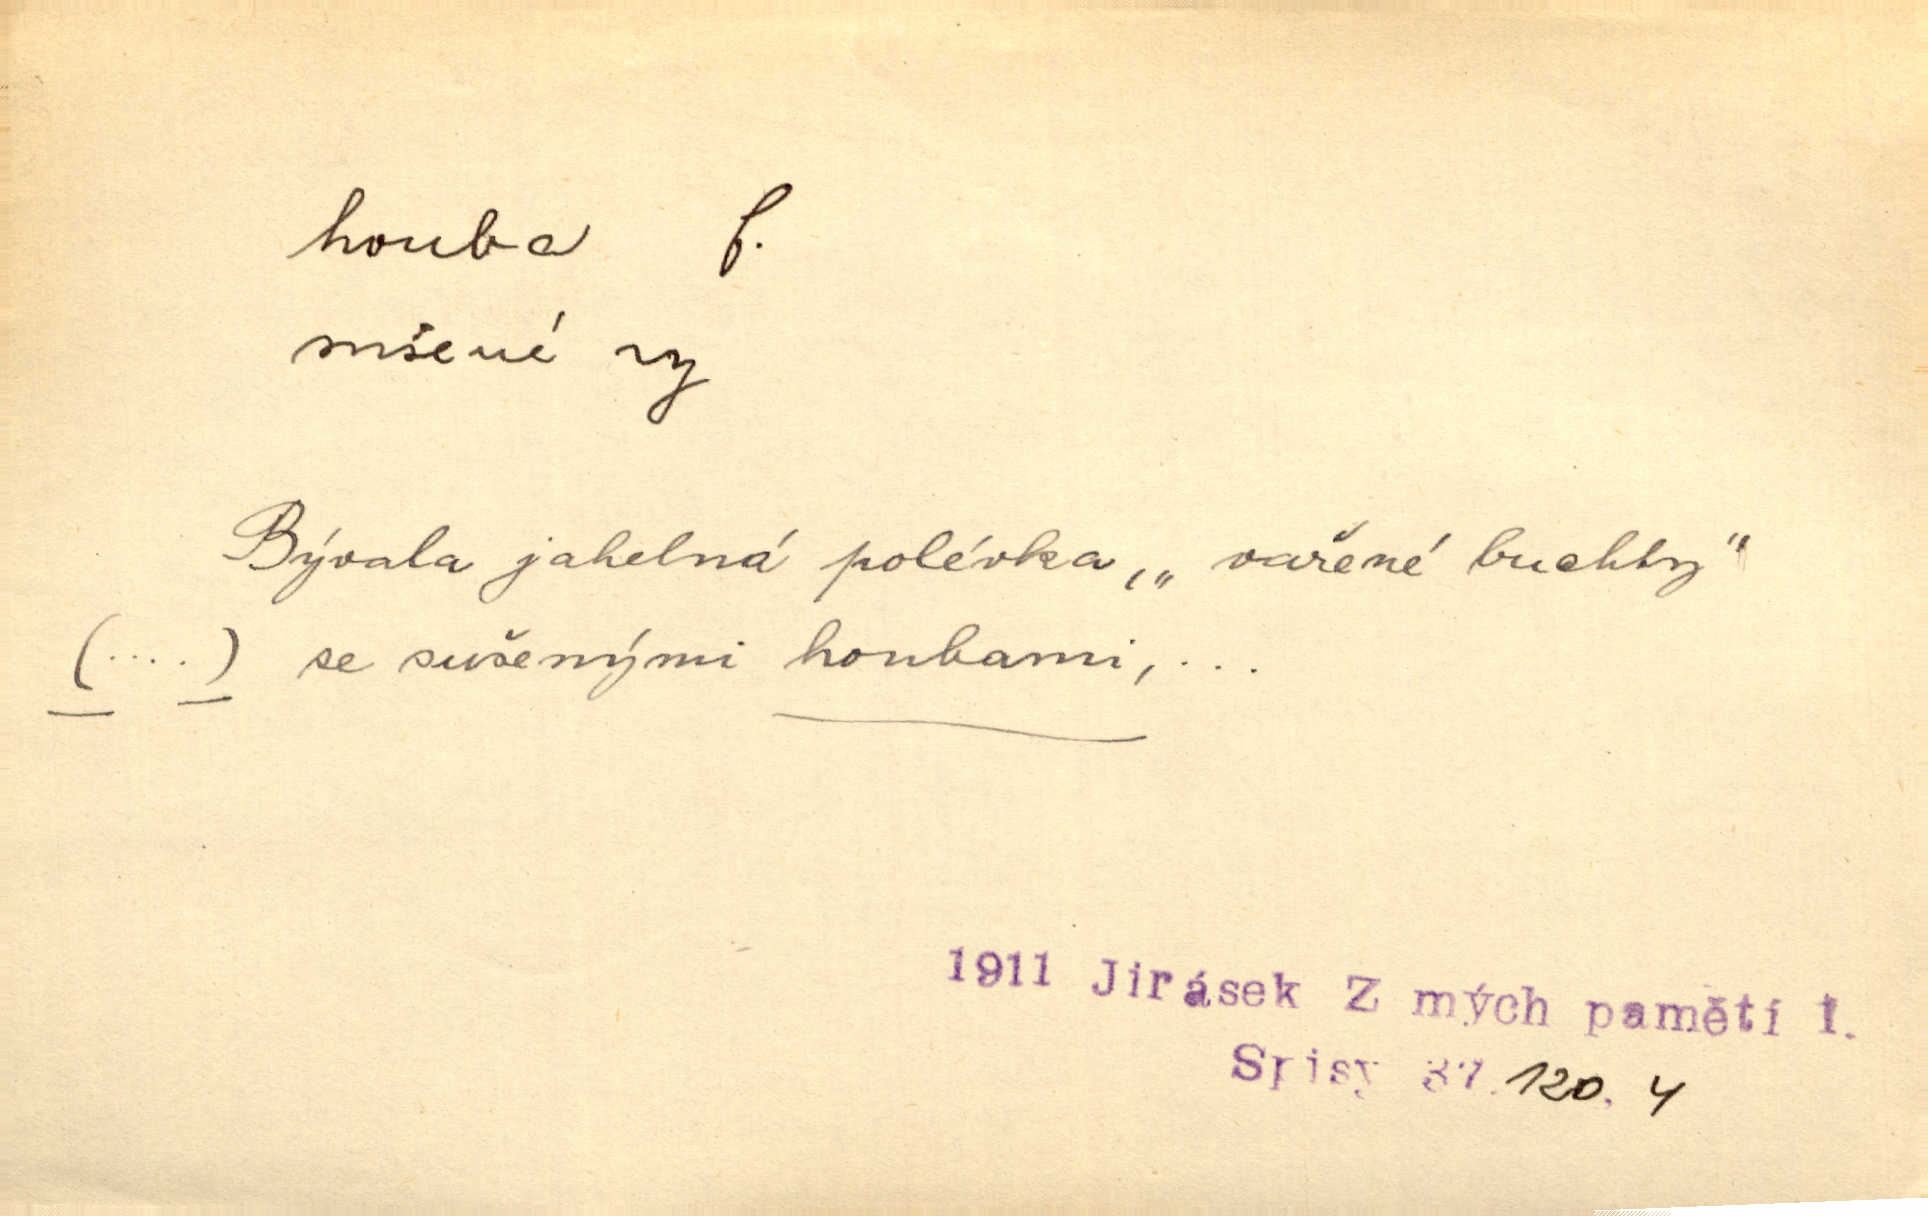 houba f.
sušené ~y
Bývala jahelná polévka, „vařené buchty"
(....) se sušenými houbami, ...
1911 Jirásek Z mých pamětí I.
Spisy 37. 120. 4